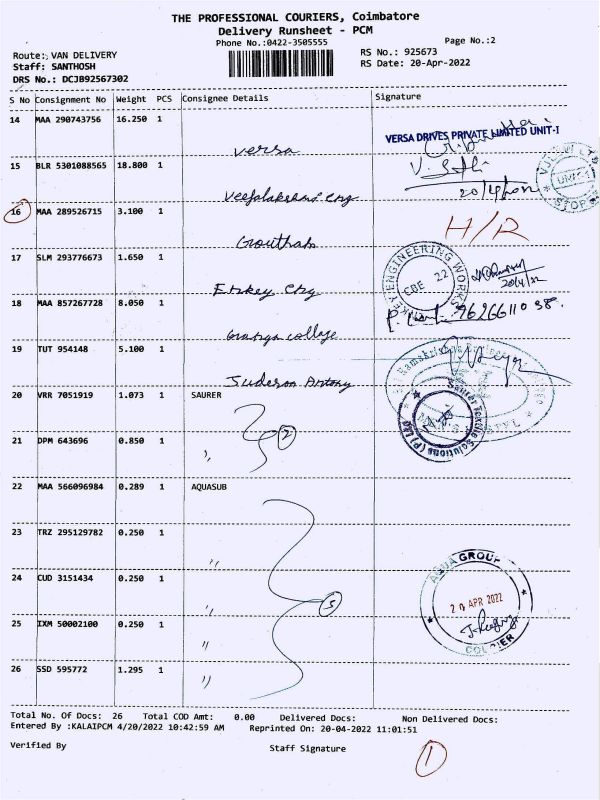 THE PROFESSIONAL COURIERS, Coimbatore
Delivery Runsheet - PCM
Phone No.:0422-3505555
Page No.:2
Route: VAN DELIVERY
RS No.: 925673
Staff: SANTHOSH
RS Date: 20-Apr-2022
DRS No.: DCJB92567302
S No Consignment No Weight PCS Consignee Details Signature
14 MAA 290743756 16.250 1
VERSA DRIVES PRIVATE LIMITED UNIT-I
versa
15 BLR 5301088565 18.800 1
UNIT-1
STORES
20/4/2022
16 MAA 289526715 3.100 1
H/R
Goutham
17 SLM 293776673 1.650 1
ENGINEERING WORKS
CBE 22
20/4/22
18 MAA 857267728 8.050 1
9626611038.
college
19 TUT 954148 5.100 1
Sri Ramakrishna
Juderson Antony
20 VRR 7051919 1.073 1 SAURER
Saurer Textile Solutions (P) Ltd
21 DPM 643696 0.850 1 ,,
2
22 MAA 566096984 0.289 1 AQUASUB
23 TRZ 295129782 0.250 1 ,,
24 CUD 3151434 0.250 1 ,,
5
AQUA GROUP
20 APR 2022
COURIER
25 IXM 50002100 0.250 1 ,,
26 SSD 595772 1.295 1 ,,
Total No. Of Docs: 26 Total COD Amt: 0.00 Delivered Docs: Non Delivered Docs:
Entered By :KALAIPCM 4/20/2022 10:42:59 AM Reprinted On: 20-04-2022 11:01:51
Verified By Staff Signature
1